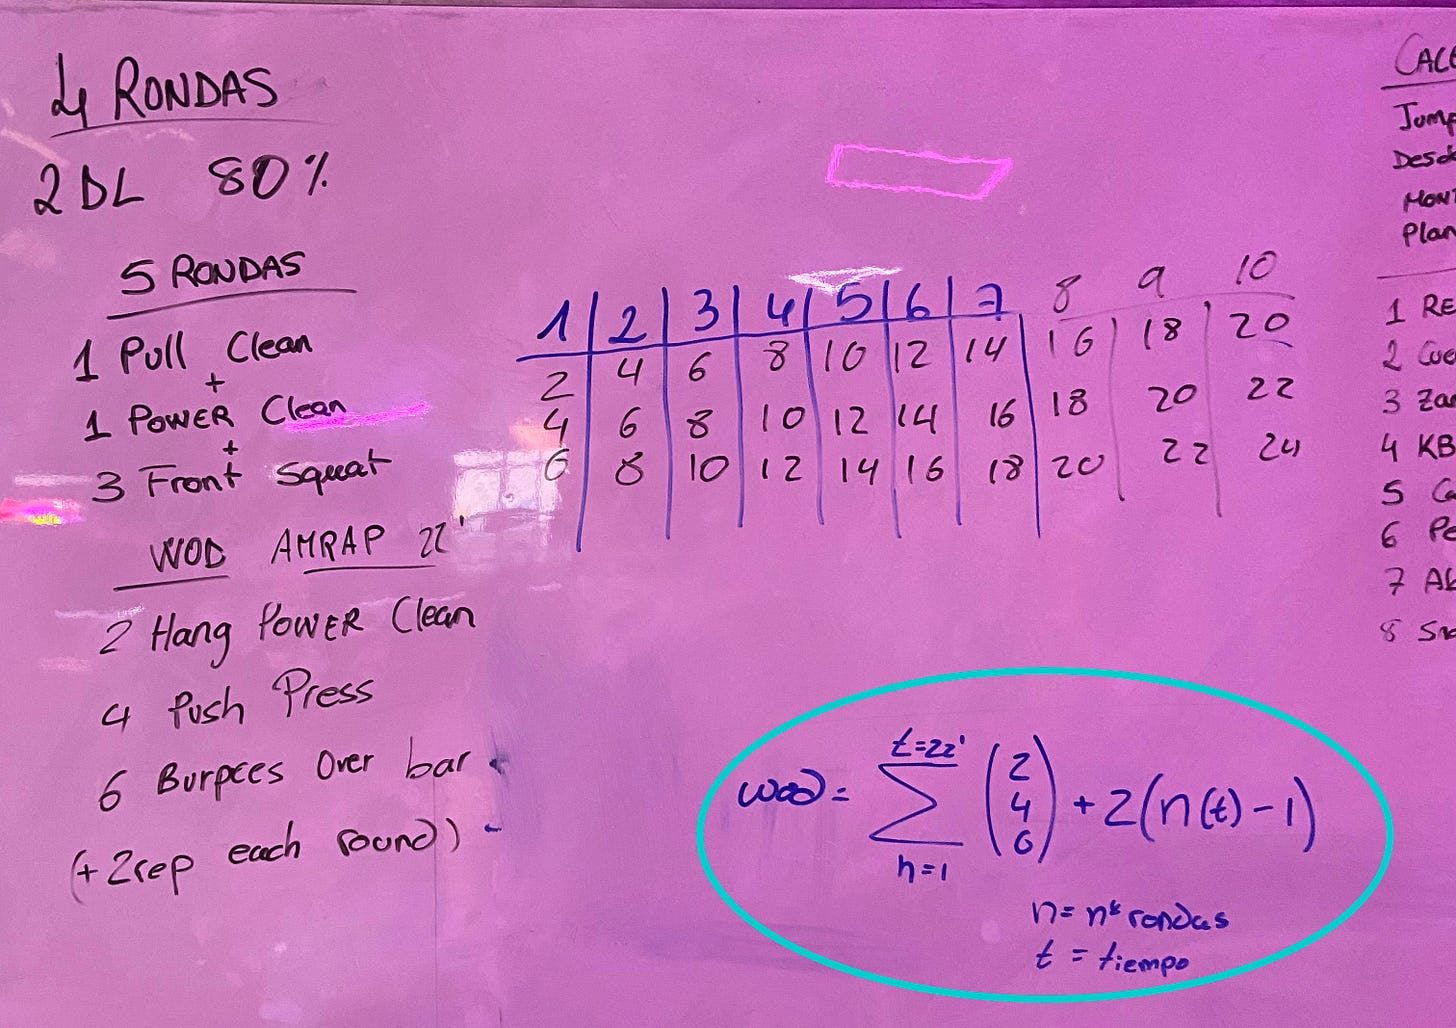 4 RONDAS
2 DL 80%
5 RONDAS
1 Pull Clean
+
1 POWER Clean
+
3 Front Squat
WOD AMRAP 22'
2 Hang POWER Clean
4 Push Press
6 Burpees Over bar
(+2rep each round)
1 2 3 4 5 6 7 8 9 10
2 4 6 8 10 12 14 16 18 20
4 6 8 10 12 14 16 18 20 22
6 8 10 12 14 16 18 20 22 24
wod =
t=22'
∑
n=1
(2
4
6)
+ 2(n(t)-1)
n= nº rondas
t = tiempo
CALE
Jump
Desde
MONT
Plan
1 RE
2 Cue
3 Zan
4 KB
5 Co
6 Pe
7 Ab
8